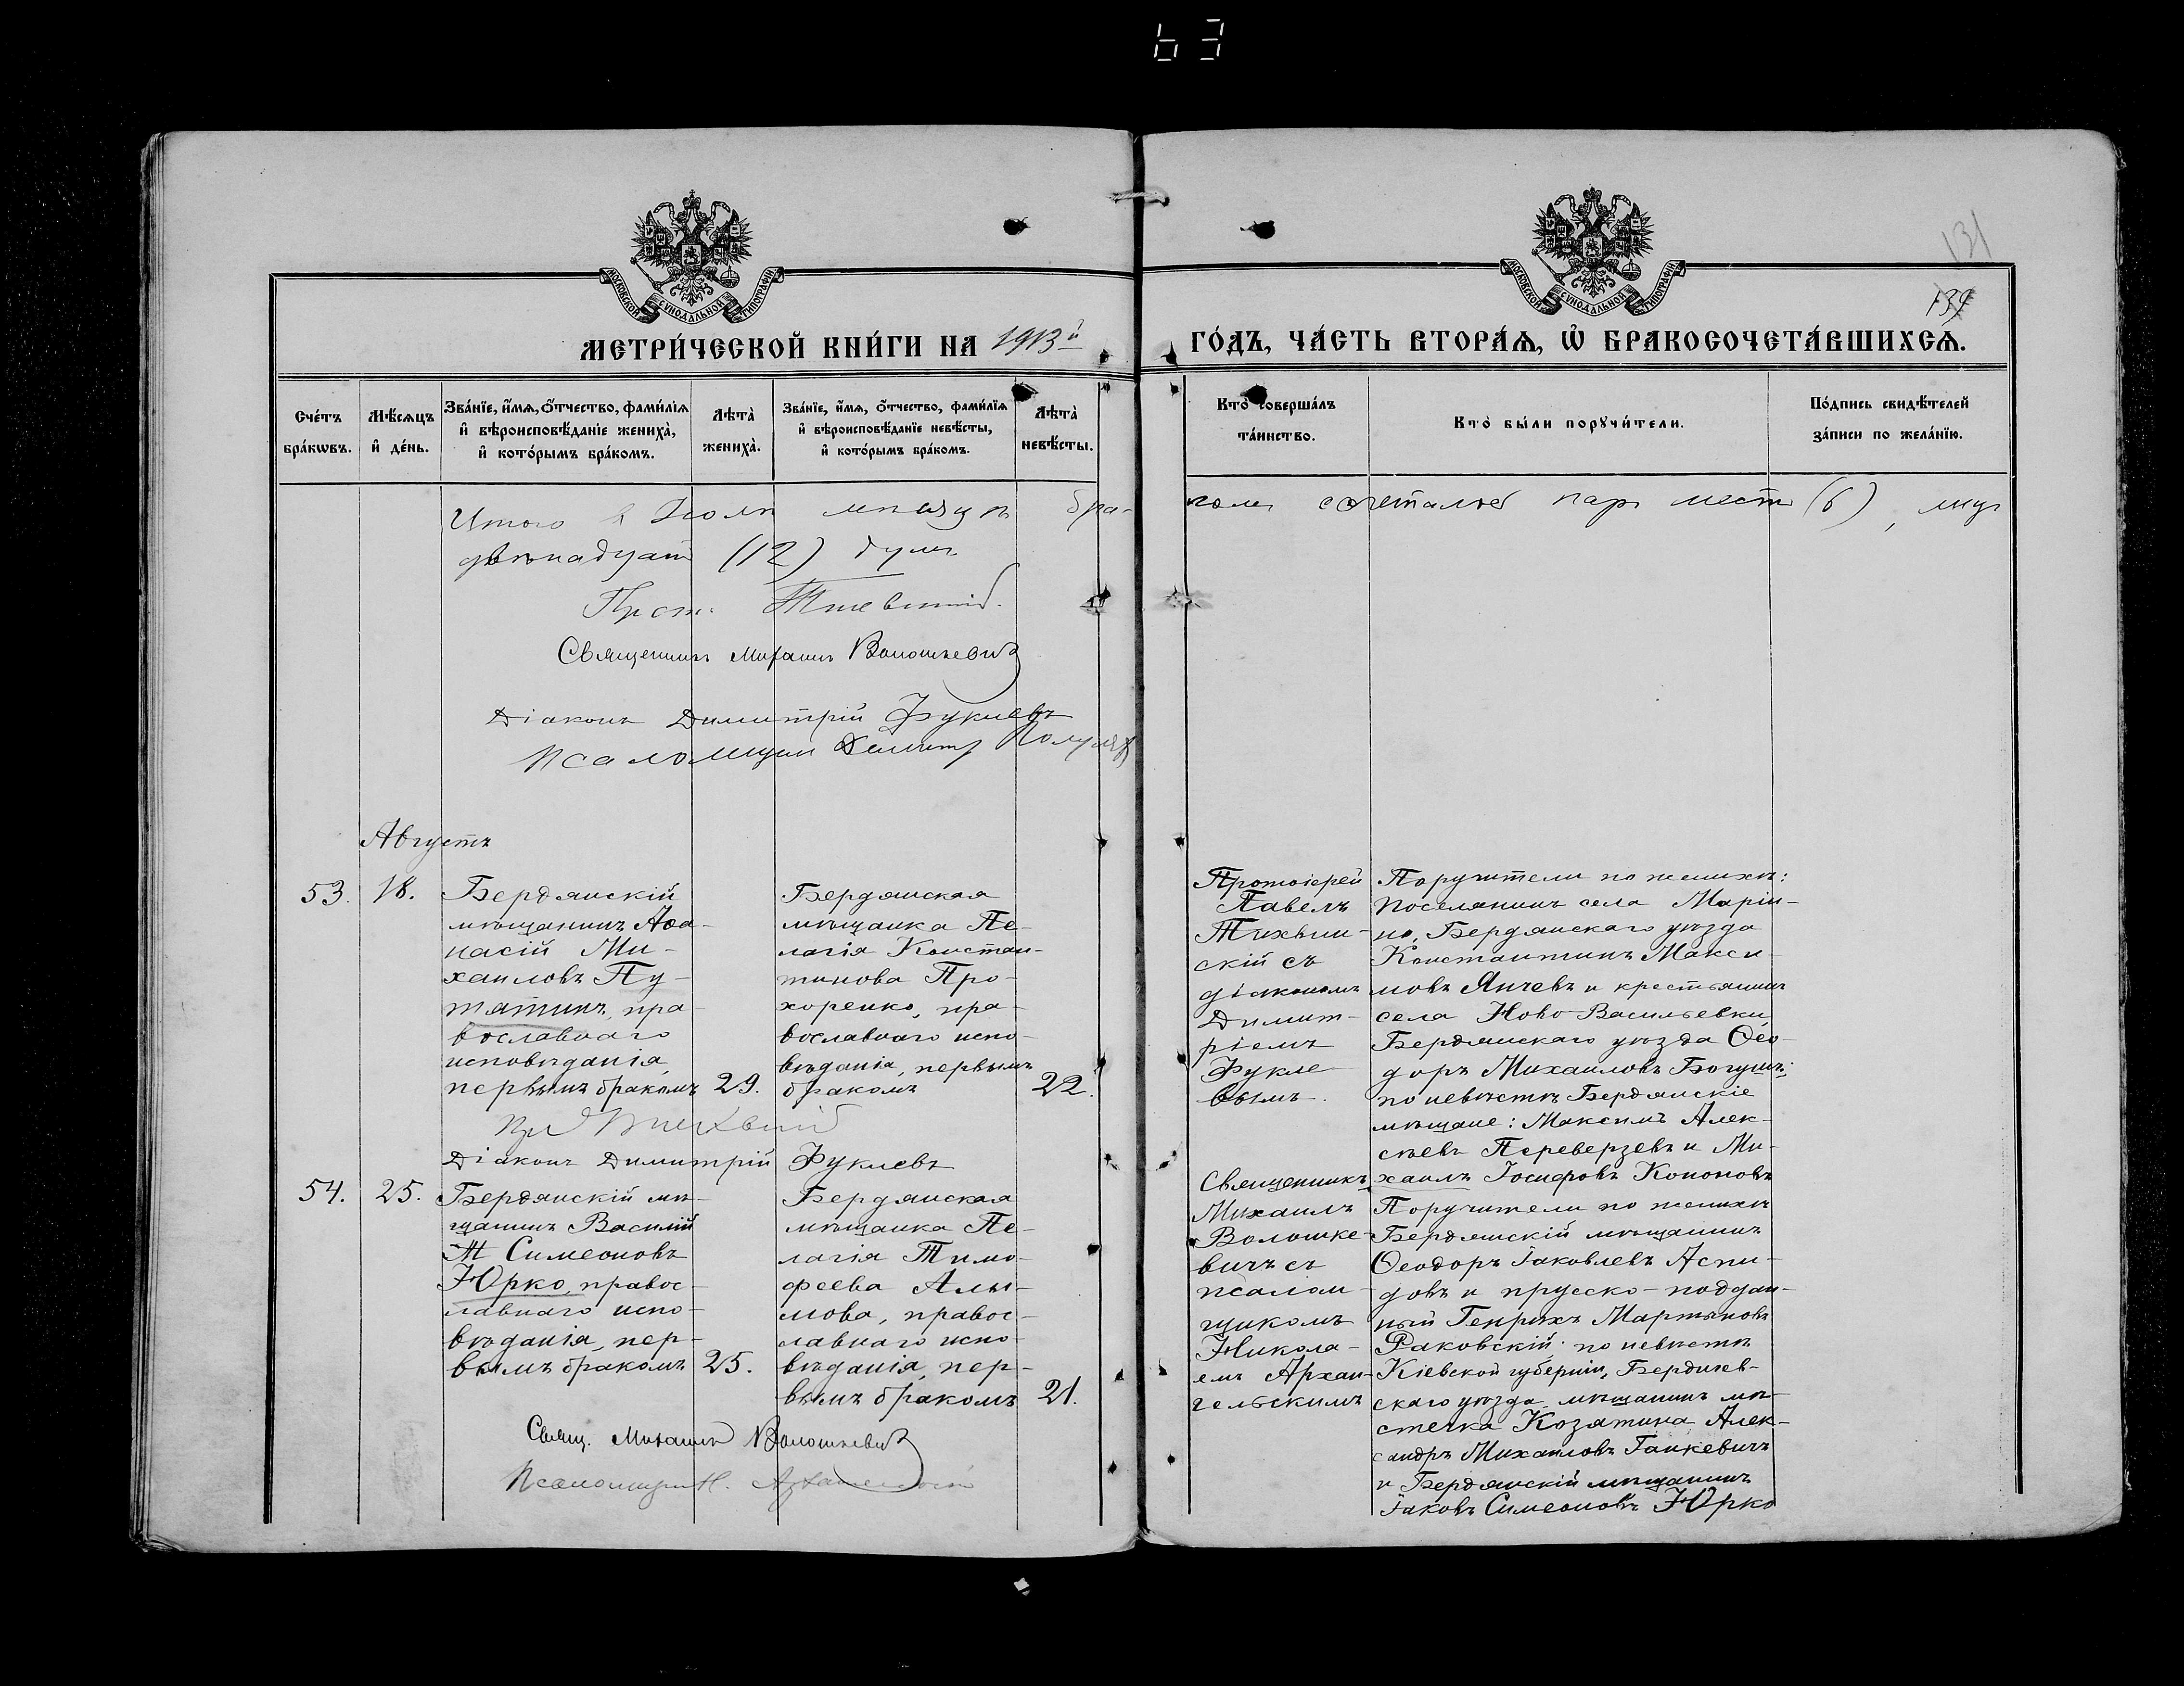 63
131
МОСКОВСКОЙ СѴНОДАЛЬНОЙ ТИПОГРАФІИ
МОСКОВСКОЙ СѴНОДАЛЬНОЙ ТИПОГРАФІИ
МЕТРИ́ЧЕСКОЙ КНИ́ГИ НА 1913й
ГО́ДЪ, ЧА́СТЬ ВТОРА́Ѧ, Ѽ БРАКОСОЧЕТА́ВШИХСѦ.
Сче́тъ
бра́кѡвъ.
Мѣ́сѧцъ
и҆ де́нь.
Зва́нїе, и҆́мѧ, ѻ҆́тчество, фами́лїѧ
и҆ вѣроисповѣ́данїе жениха̀,
и҆ кото́рымъ бра́комъ.
Лѣта̀
жениха̀.
Зва́нїе, и҆́мѧ, ѻ҆́тчество, фами́лїѧ
и҆ вѣроисповѣ́данїе невѣ́сты,
и҆ кото́рымъ бра́комъ.
Лѣта̀
невѣ́сты.
Кто̀ соверша́лъ
та́инство.
Кто̀ бы́ли порꙋчи́тели.
По́дпись свидѣ́телей
за́писи по жела́нїю.
Итого в Іюлѣ мѣсяцѣ бра-
комъ сочеталось паръ шесть (6), лицъ
двѣнадцать (12) душъ
Прот. Тихвинскій.
Священникъ Михаилъ Волошкевичъ
Діаконъ Димитрій Фуклевъ
Псаломщик Димитр
Августъ
53. 18.
Бердянскій
мѣщанинъ Аѳа-
насій Ми-
хаиловъ Пу-
тятинъ, пра-
вославнаго
исповѣданія,
первымъ бракомъ 29.
Бердянская
мѣщанка Пе-
лагія Констан-
тинова Про-
хоренко, пра-
вославнаго испо-
вѣданія, первымъ
бракомъ 22.
Протоіерей
Павелъ
Тихвин-
скій съ
діакономъ
Димит-
ріемъ
Фукле-
вымъ.
Поручители по женихѣ:
поселянинъ села Марiи-
но, Бердянскаго уѣзда
Константинъ Макси-
мовъ Янчевъ и крестьянинъ
села Ново Васильевки,
Бердянскаго уѣзда Ѳео-
доръ Михаиловъ Богушъ;
по невѣстѣ Бердянскіе
мѣщане: Максимъ Алек-
сѣевъ Переверзевъ и Ми-
хаилъ Іосифовъ Кононовъ
Прот Тихвинскій
Діаконъ Димитрій Фуклевъ
54. 25.
Бердянскій мѣ-
щанинъ Василій
Симеоновъ
Юрко, правос-
лавнаго испо-
вѣданія, пер-
вымъ бракомъ 25.
Бердянская
мѣщанка Пе-
лагія Тимо-
феева Алы-
мова, правос-
лавнаго испо-
вѣданія, пер-
вымъ бракомъ 21.
Священникъ
Михаилъ
Волошке-
вичъ съ
псалом-
щикомъ
Никола-
емъ Архан-
гельскимъ
Поручители по женихѣ
Бердянскій мѣщанинъ
Ѳеодоръ Іаковлевъ Аспи-
довъ и прусско-поддан-
ный Генрихъ Мартыновъ
Раковскій; по невѣстѣ
Кіевской губерніи, Бердичев-
скаго уѣзда, мѣщанинъ мѣ-
стечка Козятина Алек-
сандръ Михаиловъ Ганкевичъ
и Бердянскій мѣщанинъ
Іаковъ Симеоновъ Юрко
Свящ. Михаилъ Волошкевичъ
Псаломщикъ Н. Архангельскій